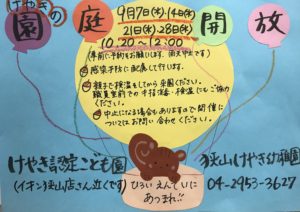 けやきの
園庭開放
9月7日(水)・14日(水)
21日(水)・28日(水)
10:20~12:00
(事前に予約をお願いします。雨天中止です)
感染予防に配慮して行います。
親子で検温をしてから来園ください。
職員室前での手指消毒・検温にもご協力
ください。
中止になる場合もありますので開催に
ついてはお問い合わせください。
けやき認定こども園
(イオン狭山店さん近くです)
ひろいえんていに
あつまれ!!
狭山けやき幼稚園
04-2953-3627